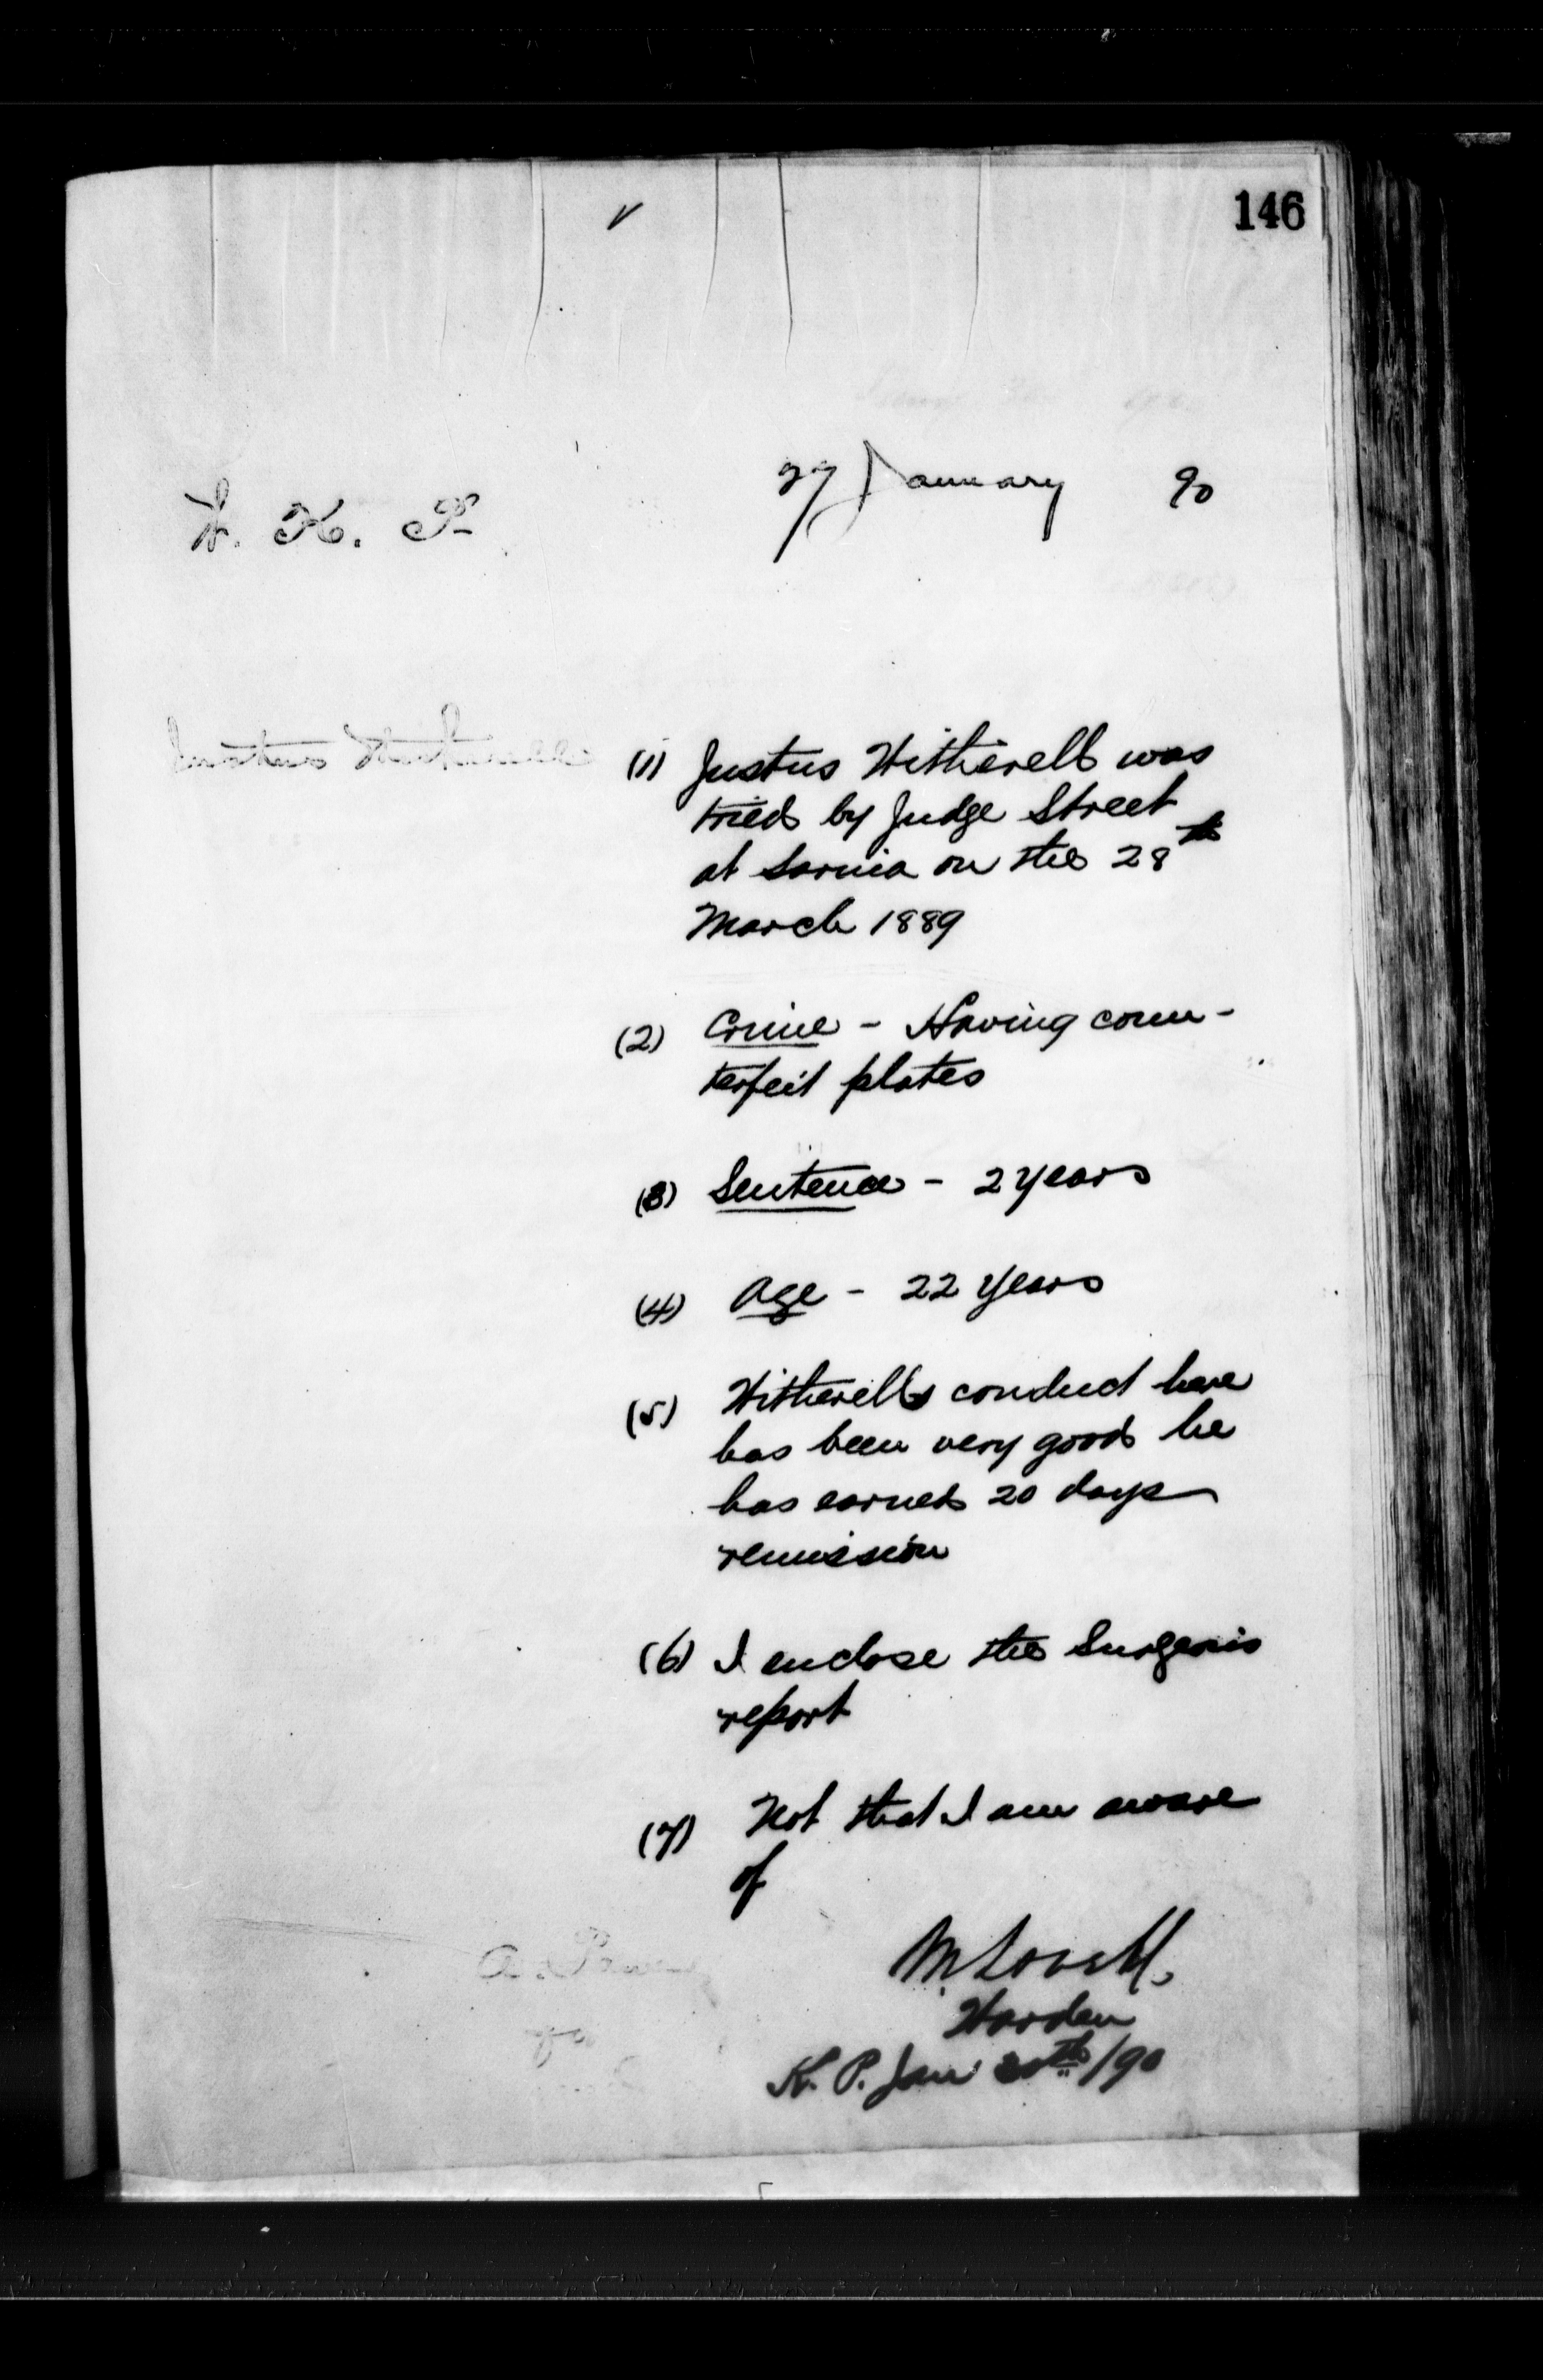 146
27 January 90
W. K. P.
Justus Witherell
(1) Justus Witherell was
tried by Judge Street
at Sarnia on the 28th
March 1889
(2) Crime - Having coun-
terfeit plates
(3) Sentence - 2 years
(4) Age - 22 years
(5) Witherells conduct here
has been very good he
has earned 20 days
remission
(6) I enclose the Surgeon's
report
(7) Not that I am aware
of
M Lavell,
Warden
K. P. Jan 30th/90